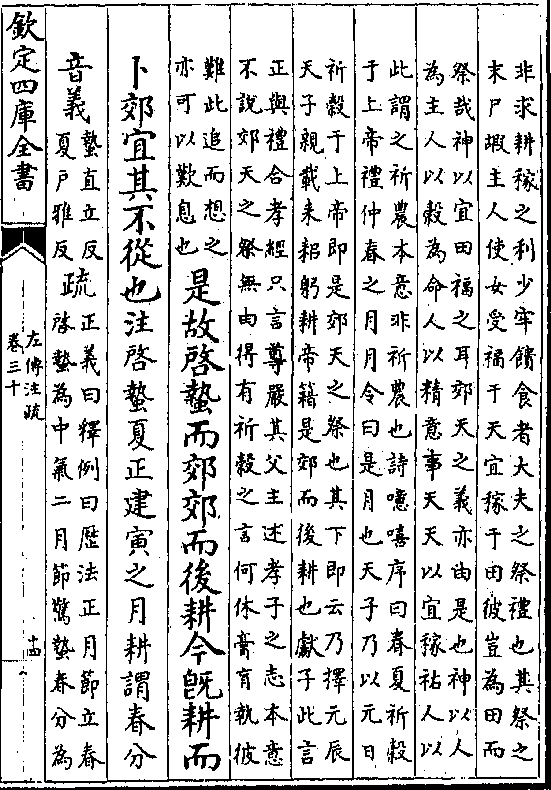 非求耕稼之利少牢饋食者大夫之祭禮也其祭之
末尸嘏主人使女受福于天宜稼于田彼豈為田而
祭哉神以宜田福之耳郊天之義亦由是也神以人
為主人以穀為命人以精意事天天以宜稼祐人以
此謂之祈農本意非祈農也詩噫嘻序曰春夏祈穀
于上帝禮仲春之月月令曰是月也天子乃以元日
祈穀于上帝即是郊天之祭也其下即云乃擇元辰
天子親載耒耜躬耕帝籍是郊而後耕也獻子此言
正與禮合孝經只言尊嚴其父主述孝子之志本意
不說郊天之祭無由得有祈穀之言何休膏肓執彼
難此追而想之
亦可以歎息也
是故啓蟄而郊郊而後耕今旣耕而
卜郊宜其不從也注啓蟄夏正建寅之月耕謂春分
音義
蟄直立反
夏戶雅反
疏
正義曰釋例曰歷法正月節立春
啓蟄為中氣二月節驚蟄春分為
欽定四庫全書
左傳注疏
卷三十
十四